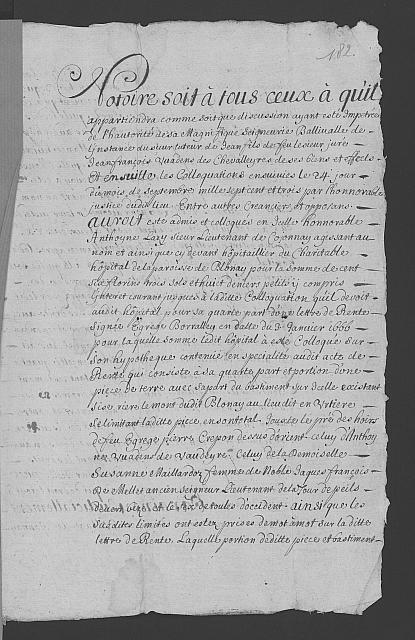 182
Notoire soit à tous ceux à qu'il
appartiendra comme soit que discussion ayant esté Impetrée
de l'hautorité de sa Magnifique Seigneurie Ballivalle de
Instance du sieur tuteur de Jean fils de feu le sieur juré
Jean François Vuadens des Chevalleyres de ses biens et effects
Et ensuitte les Colloquations ensuivies le 24. jour
du mois de septembre mille sept cent et trois par l'honnorable
justice dudit lieu Entre autres Creanciers et opposans
auroit esté admis et colloqués en Icelle honnorable
Anthoyne Lazy sieur Lieutenant de Cojonnay agissant au
nom et ainsi que cy devant hospitaillier du Charitable
hôpital de la paroisse de Blonay pour la somme de cent
six florins trois sols et huict deniers petits y compris
Interet courant jusques à laditte Colloquation qu'el devoit
audit hôpital pour sa quarte part d'une lettre de Rente
signée Egrege Borralley en datte du 3e Janvier 1666
pour laquelle somme ledit hôpital a esté Colloqué sur
son hypotheque contenue en specialité audit acte de
Rente qui consiste à sa quarte part et portion d'une
piece de terre avec sa part du bastiment sur Icelle existant
sise riere le mont dudit Blonay au lieu dit en
se limitant laditte piece, en son total Jouste le pré des hoirs
de feu Egrege pierre Crepon dessus d'orient celuy d'Anthoy
ne Vuadens de Vaudeyre Celuy de la Demoiselle
Susanne Maillardoz femme de Noble Jaques François
De Mellet ancien Seigneur Lieutenant de la Tour de peils
devers vent et le d'occident ainsi que les
susdittes limites ont estez prises de mot à mot sur la ditte
lettre de Rente Laquelle portion deditte piece et bastiment